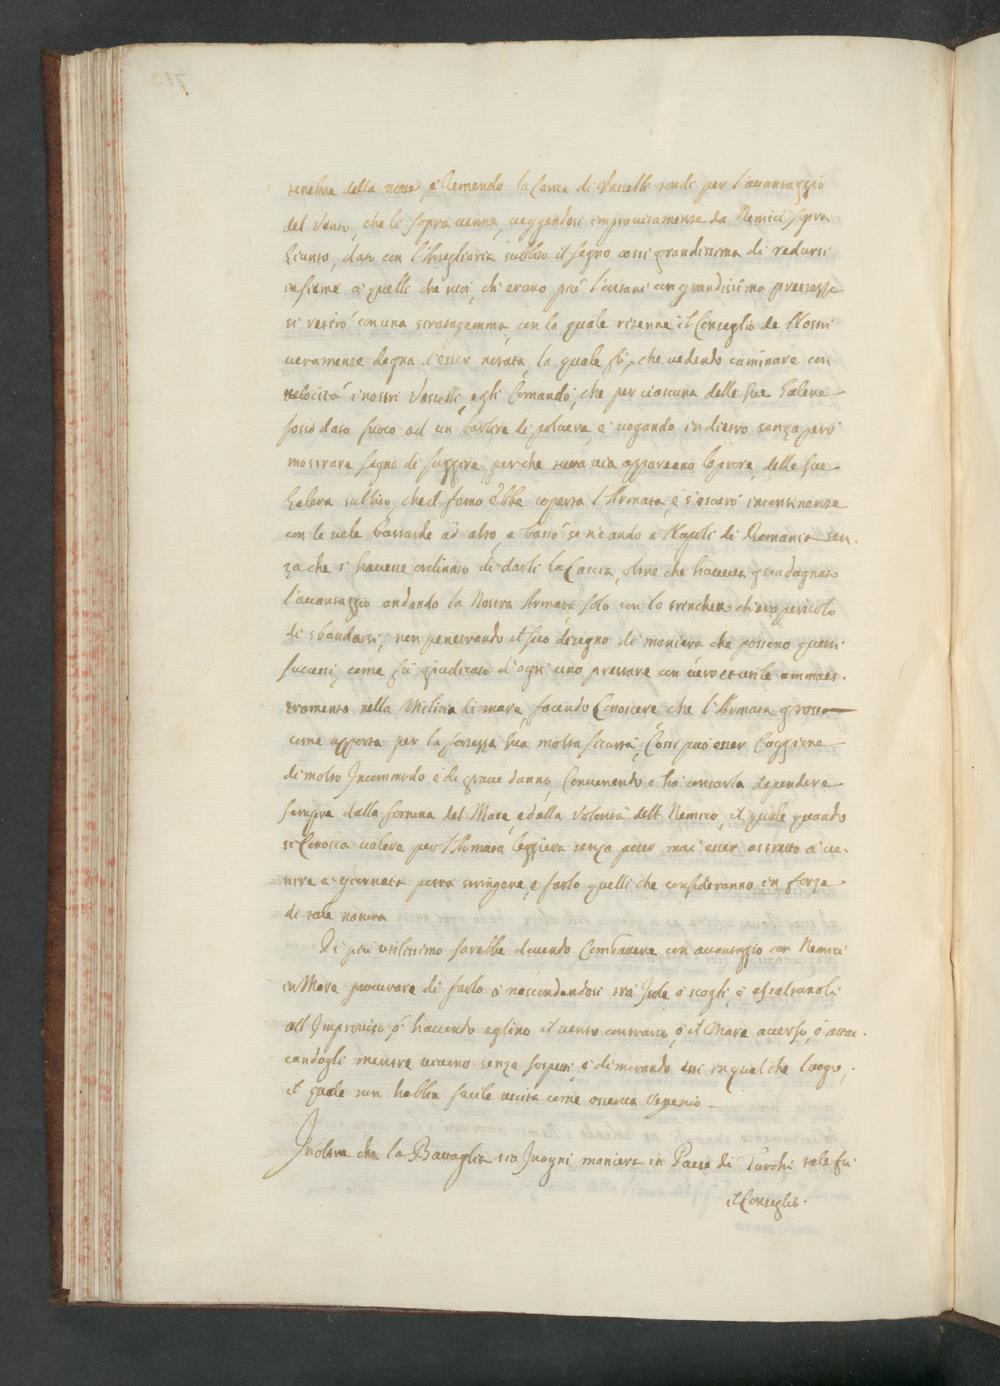 tenebre della notte, è temendo la Carca di Vascelli tondi per l'avantaggio
del Vento, che li sopra venne, veggendosi improvisamente da Nemici sopra
Giunto, dato con l'Artegliaria subbito il segno cossi grandissima di redursi
insieme à quelli che suoi, ch'erano più lontani con grandissima prestezza
si retirò con una stratagemma, con la quale ritenne il Conseglio de Nostri
veramente degna d'esser notata, la quale fù, che vedendo caminare con
velocità i nostri Vascelli, egli Comandò, che per ciascuna delle sue Galere
fosse dato fuoco ad un barile di polvere, è vogando indietro senza però
mostrare segno di fuggire perche tuttavia appareano le prore delle sue
Galere subbito, che il fumo ebbe coperta l'Armata, è s'oscurò incontinente
con le vele bastarde ad alto, e basso se n'è andò a Napoli di Romania sen-
za che si havesse ordinato di darli la Caccia, oltre che haveva guadagnato
l'avantaggio andando la Nostra Armata solo con lo trinchetto ch'era pericolo
di sbandarsi, non penetrando il suo disegno di maniera che possono questi
successi, come fù giudicato d'ogni uno prestare un vero et utile ammaes-
tramento nella Militia di mare, facendo Conoscere che l'Armata grossa
come apporta per la fortezza sua molta sicurtà, Cossi può esser Caggione
di molto Incommodo è di grave danno, Convenendo à
sempre dalla fortuna del Mare, è dalla Volontà dell Nemico, il quale quando
si Conosca valere per l'Armata leggiera senza poter mai esser astretto a ve-
nire a giornata potrà stringere, è farlo quelli che consideranno in forza
di tale natura
Di più utilissimo sarebbe dovendo Combattere con avantaggio con Nemici
in Mare procurare di farlo ò nascondendosi trà Isole ò scogli, è assaltandoli
all'Improviso, ò havendo eglino il vento contrario, ò il Mare averso, ò attac-
candogli mentre vivono senza sospetti, ò dimorando essi in qualche luogo,
il quale non habbia facile uscita come osserva Vegetio
Inoltre che la Battaglia sia Inogni maniera in Paese di Turchi tale fù
il Conseglio.